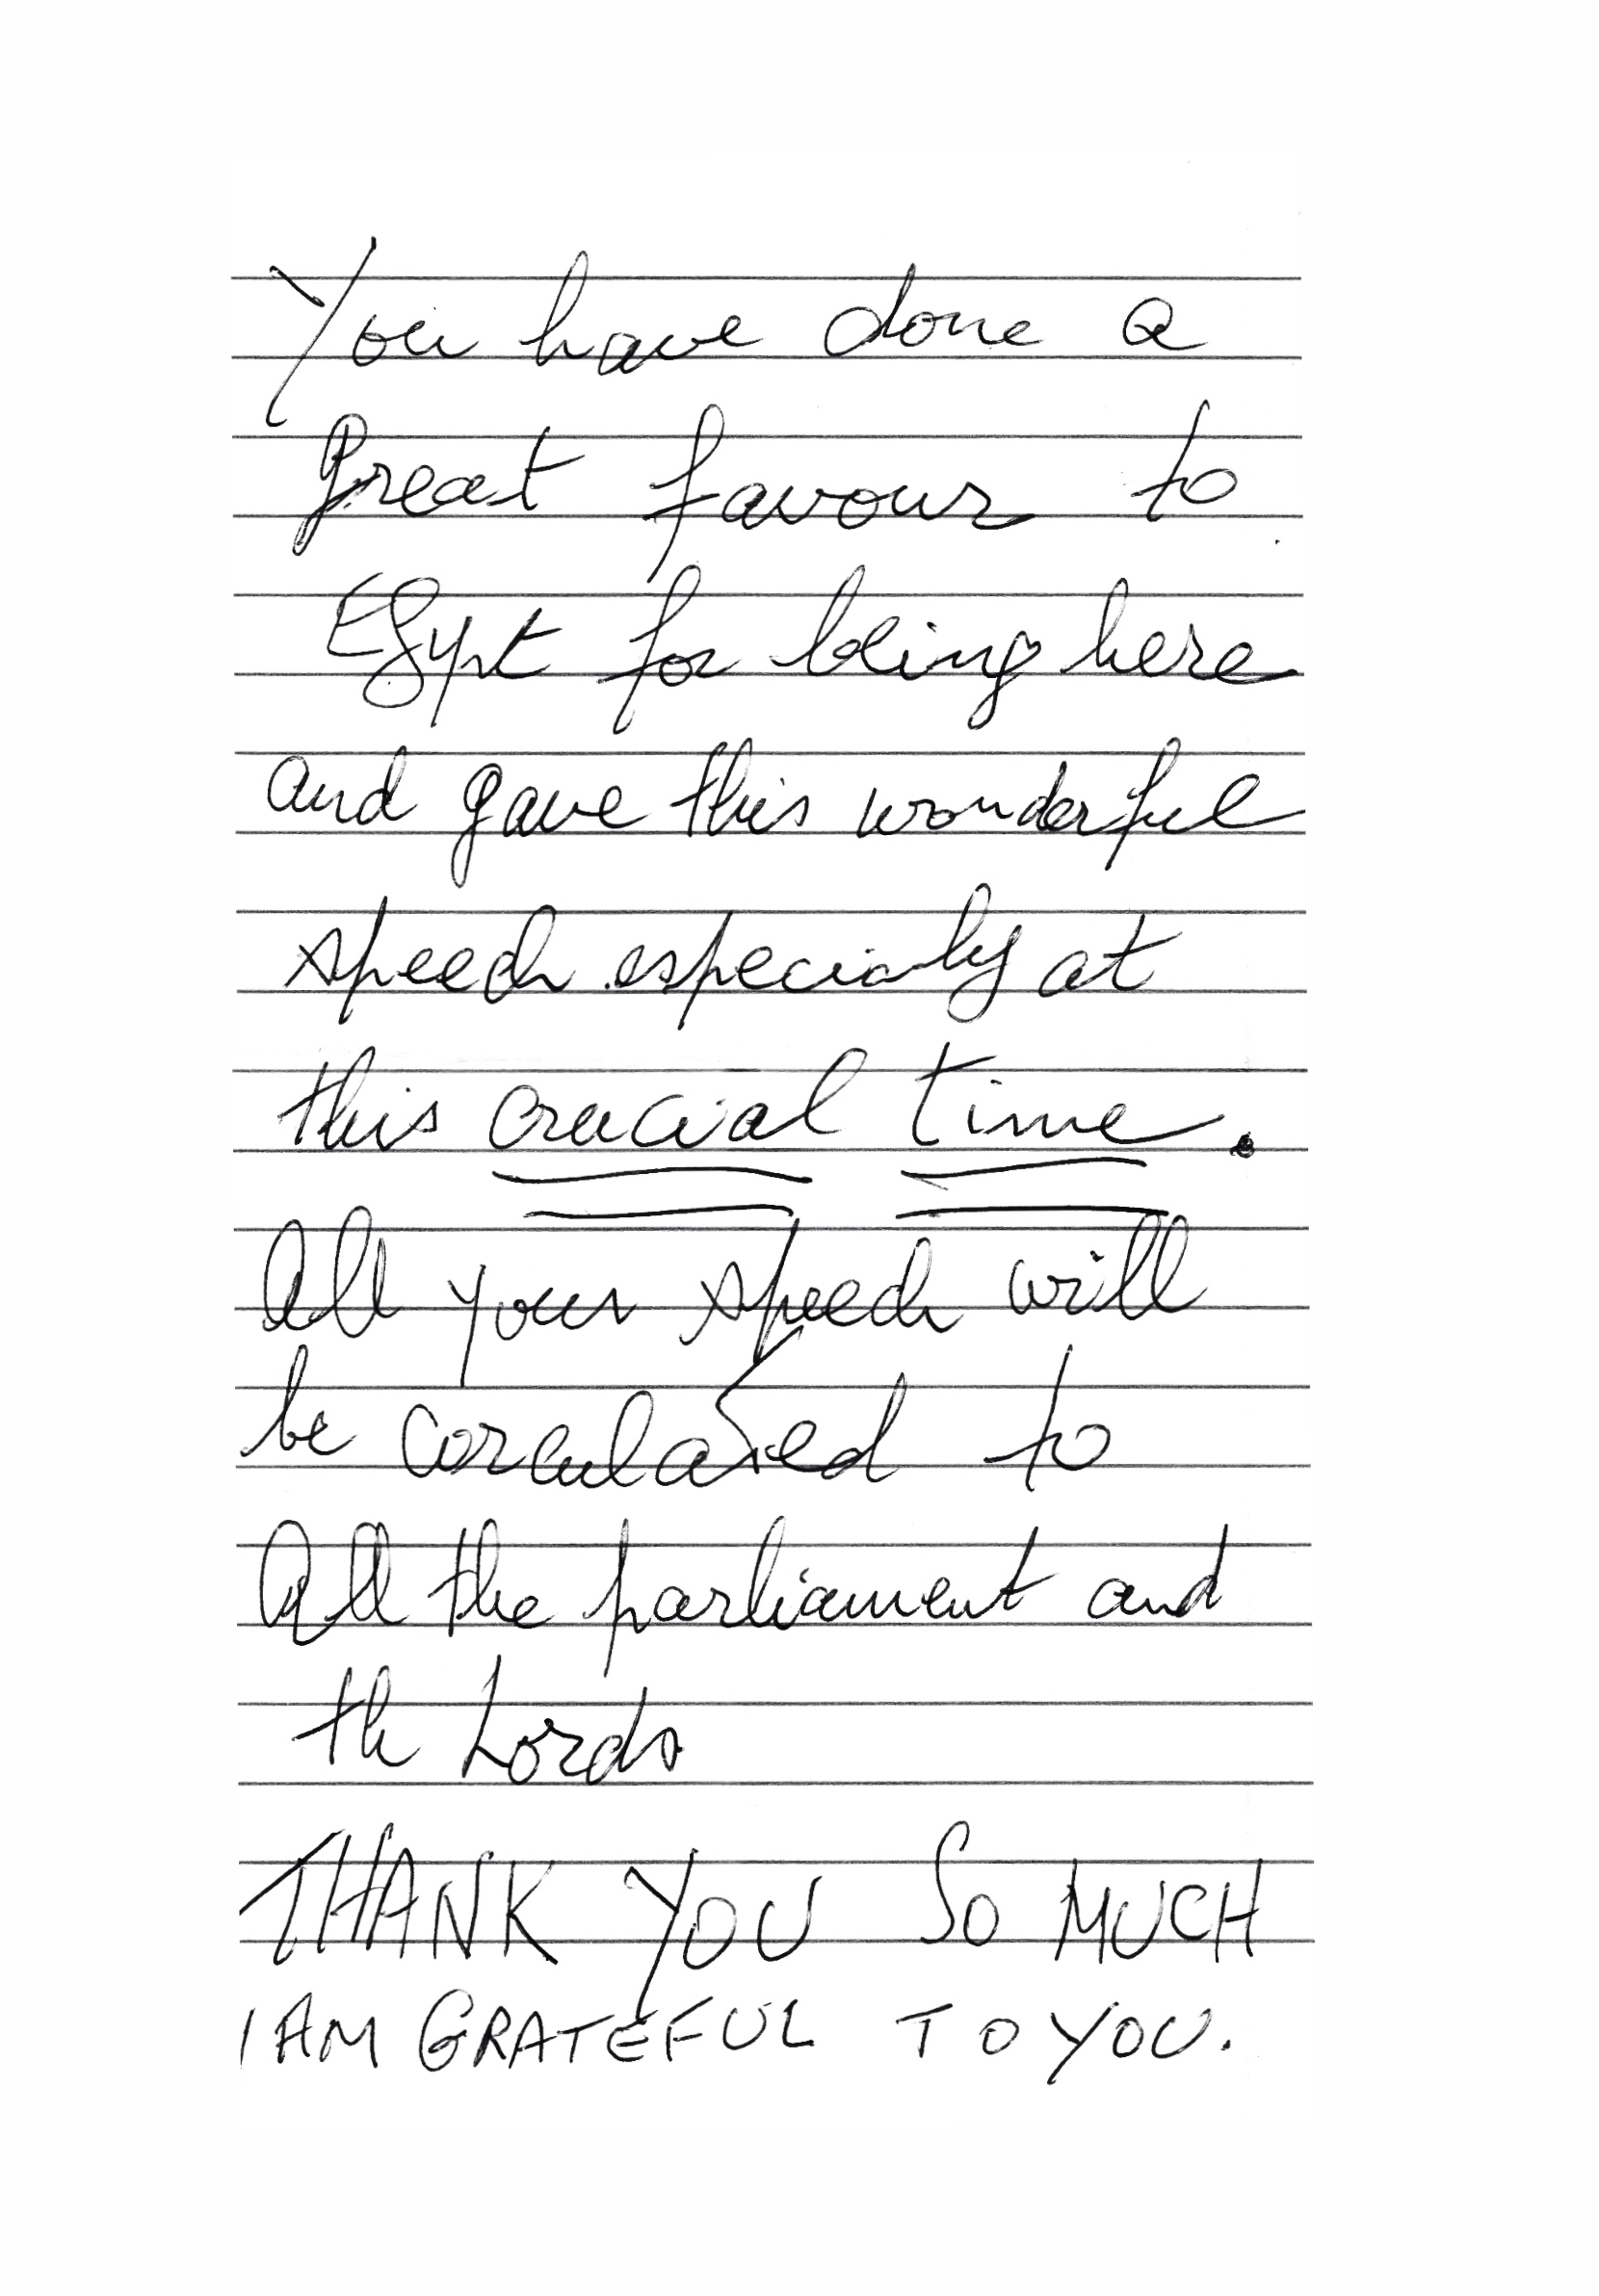 You have done a
great favour to
Egypt for being here
and gave this wonderful
speech especialy at
this crucial time.
All your speech will
be corculated to
All the parliament and
th Lords
THANK YOU SO MUCH
I AM GRATEFUL TO YOU.